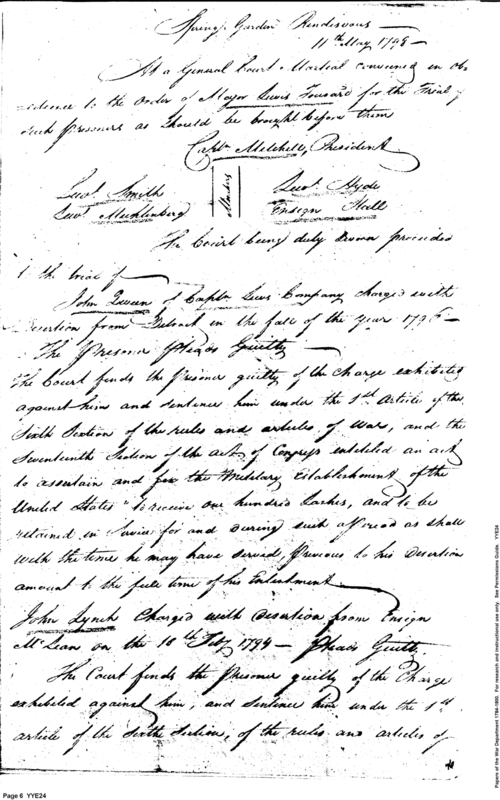 Spring Garden Rendezvous
11th May 1798
At a General Court Martial convened in obe
dience to the order of Major Lewis Tousard for the Trial of
such prisoners as should be brought before them
Captn Mitchell, President
Lieut Smith Members Lieut Hyde
Lieut Muhlenberg Ensign Hall
The Court being duly sworn proceeded
to the trial of
John Queen of Captn Lewis Company charged with
desertion from Detroit in the fall of the year
The Prisoner Pleads Guilty
The Court finds the Prisoner guilty of the Charge exhibited
against him and sentence him under the 1st Article of the
Sixth Section of the rules and articles of War, and the
Seventeenth Section of the act of Congress entitled an act
to ascertain and fix the Military Establishment of the
United States "to receive one hundred Lashes, and to be
retained in Service for and during such a Period as shall
with the time he may have served, Previous to his Desertion
amount to the full time of his Enlistment
John Lynch charged with desertion from Ensign
McLean on the 18th Feby 1794 — Pleads Guilty.
The Court finds the Prisoner guilty of the Charge
exhibited against him, and sentence him under the 1st
article of the Sixth Section, of the rules and articles of
Page 6 YYE24
Papers of the War Department 1784-1800. For research and instructional use only. See Permissions Guide. YYE24